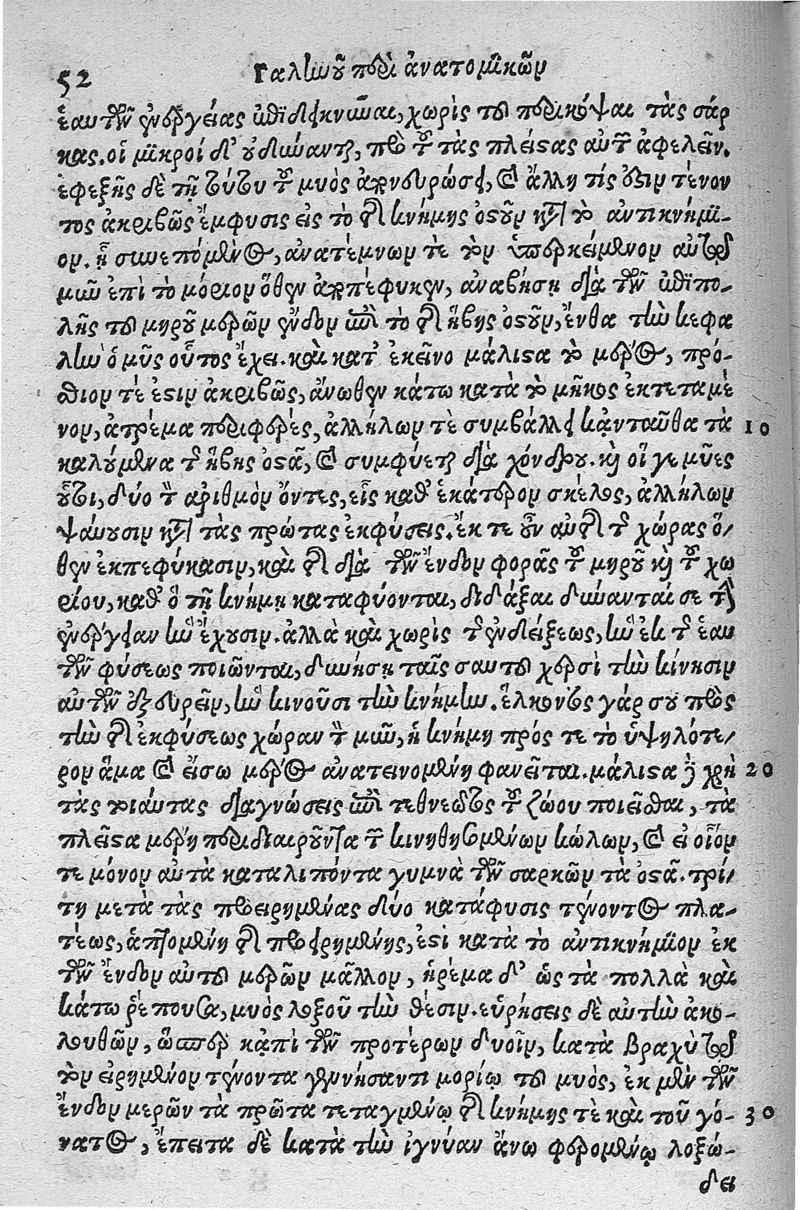 52 Γαληνοῦ περὶ ἀνατομικῶν
ἑαυτῶν ἐνεργείας ἐπιδείκνυνται, χωρὶς τοῦ περικόψαι τὰς σάρ
κας. οἱ μικροὶ δ' οὐ δύνανται, πρὸ τοῦ τὰς πλείστας αὐτῶν ἀφελεῖν.
ἐφεξῆς δὲ τῇ τούτου τοῦ μυὸς ἀπονευρώσει, καὶ ἄλλη τίς ἐστιν τένον
τος ἀκριβῶς ἔμφυσις εἰς τὸ τῆς κνήμης ὀστοῦν κατὰ τὸ ἀντικνήμι-
ον. ᾗ συνεπόμενος, ἀνατέμνων τε τὸν ὑπερκείμενον αὐτοῦ
μῦν ἐπὶ τὸ μόριον ὅθεν ἀποπέφυκεν, ἀναβήσῃ διὰ τῶν ἐπιπο-
λῆς τοῦ μηροῦ μερῶν ἔνδον ἐπὶ τὸ τῆς ἥβης ὀστοῦν, ἔνθα τὴν κεφα
λὴν ὁ μῦς οὗτος ἔχει. καὶ κατ' ἐκεῖνο μάλιστα τὸ μέρος, πρό-
σθιον τέ ἐστιν ἀκριβῶς, ἄνωθεν κάτω κατὰ τὸ μῆκος ἐκτεταμέ
νον, ἀτρέμα περιφερές, ἀλλήλων τὲ συμβάλλει κἀνταῦθα τὰ 10
καλούμενα τῆς ἥβης ὀστᾶ, καὶ συμφύεται διὰ χόνδρου. καὶ οἵ γε μῦες
οὗτοι, δύο τὸν ἀριθμὸν ὄντες, εἷς καθ' ἑκάτερον σκέλος, ἀλλήλων
ψαύουσιν κατὰ τὰς πρώτας ἐκφύσεις. ἔκ τε οὖν αὐτῆς τῆς χώρας ὅ-
θεν ἐκπεφύκασιν, καὶ τῆς διὰ τῶν ἔνδον φορᾶς τοῦ μηροῦ καὶ τοῦ χω
ρίου, καθ' ὃ τῇ κνήμῃ καταφύονται, διδάξαι δύνανταί σε τὴν
ἐνέργειαν ἣν ἔχουσιν. ἀλλὰ καὶ χωρὶς τῆς ἐνδείξεως, ἣν ἐκ τῆς ἑαυ
τῶν φύσεως ποιῶνται, δυνήσῃ ταῖς σαυτοῦ χερσὶ τὴν κίνησιν
αὐτῶν ἐξευρεῖν, ἣν κινοῦσι τὴν κνήμην. ἕλκοντος γάρ σου πρὸς
τὴν τῆς ἐκφύσεως χώραν τὸν μῦν, ἡ κνήμη πρός τε τὸ ὑψηλότε-
ρον ἅμα καὶ εἴσω μέρος ἀνατεινομένη φανεῖται. μάλιστα δὲ χρὴ 20
τὰς τοιαύτας διαγνώσεις ἐπὶ τεθνεῶτος τοῦ ζώου ποιεῖσθαι, τὰ
πλεῖστα μέρη περιδιαιροῦντα τῶν κινηθησομένων κώλων, καὶ εἰ οἷόν
τε μόνον αὐτὰ καταλιπόντα γυμνὰ τῶν σαρκῶν τὰ ὀστᾶ. τρί-
τη μετὰ τὰς προειρημένας δύο κατάφυσις τένοντος πλα-
τέως, ἁπτομένη τῆς προειρημένης, ἐστὶ κατὰ τὸ ἀντικνήμιον ἐκ
τῶν ἔνδον αὐτοῦ μερῶν μᾶλλον, ἠρέμα δ' ὡς τὰ πολλὰ καὶ
κάτω ῥέπουσα, μυὸς λοξοῦ τὴν θέσιν. εὑρήσεις δὲ αὐτὴν ἀκο-
λουθῶν, ὥσπερ κἀπὶ τῶν προτέρων δυοῖν, κατὰ βραχὺ τοῦ
τὸν εἰρημένον τένοντα γεννήσαντι μορίῳ τοῦ μυὸς, ἐκ μὲν τῶν
ἔνδον μερῶν τὰ πρῶτα τεταγμένῳ τῆς κνήμης τὲ καὶ τοῦ γό- 30
νατος, ἔπειτα δὲ κατὰ τὴν ἰγνύαν ἄνω φερομένῳ λοξώ-
δει